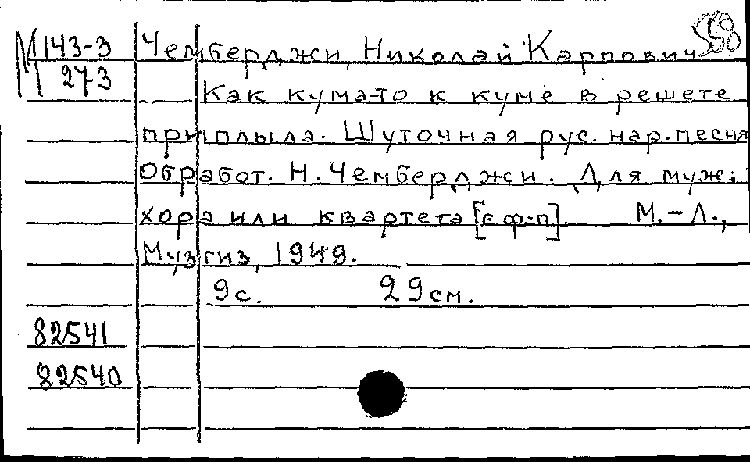 М 143-3 Чемберджи, Николай Карпович
273 Как кума-то к куме в решете
приплыла. Шуточная рус. нар. песня
Обработ. Н. Чемберджи. Для муж.
хора или квартета [с ф-п] М.-Л.,
Музгиз, 1949.
9с. 29см.
82541
82540